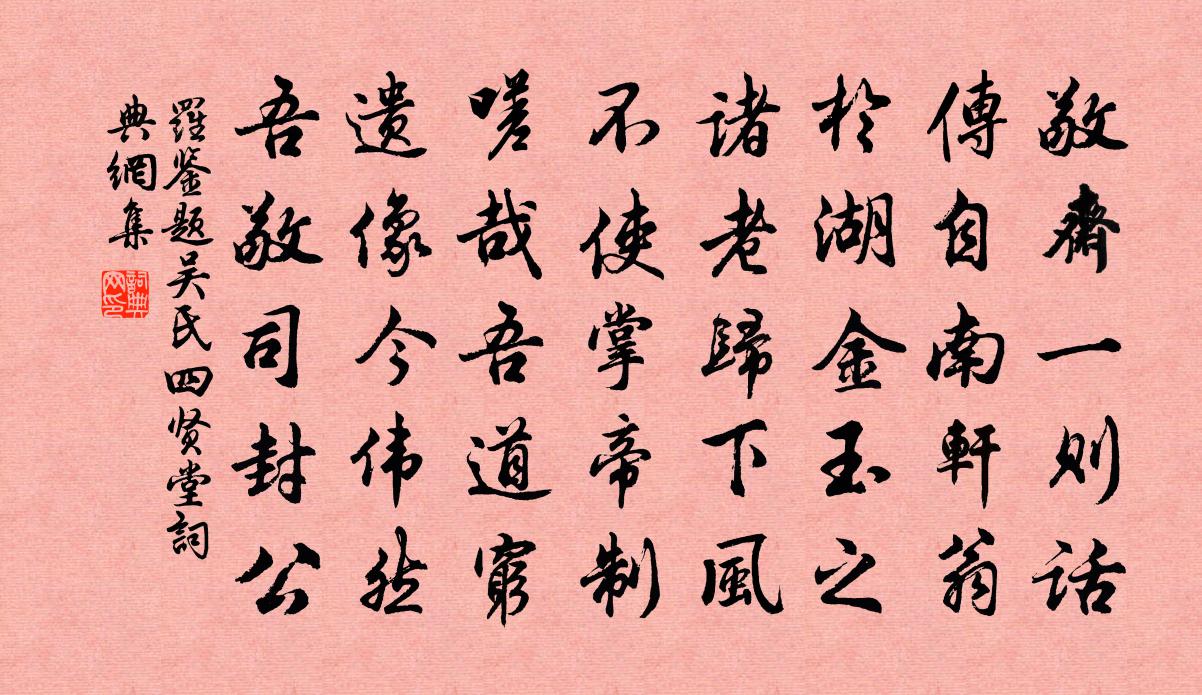 敬齋一则话
傳自南軒翁
於湖金玉之
诸老歸下風
不使掌帝制
嗟哉吾道窮
遗像今伟然
吾敬司封公
羅鉴题吴氏四贤堂詞
典網集
詞典網印